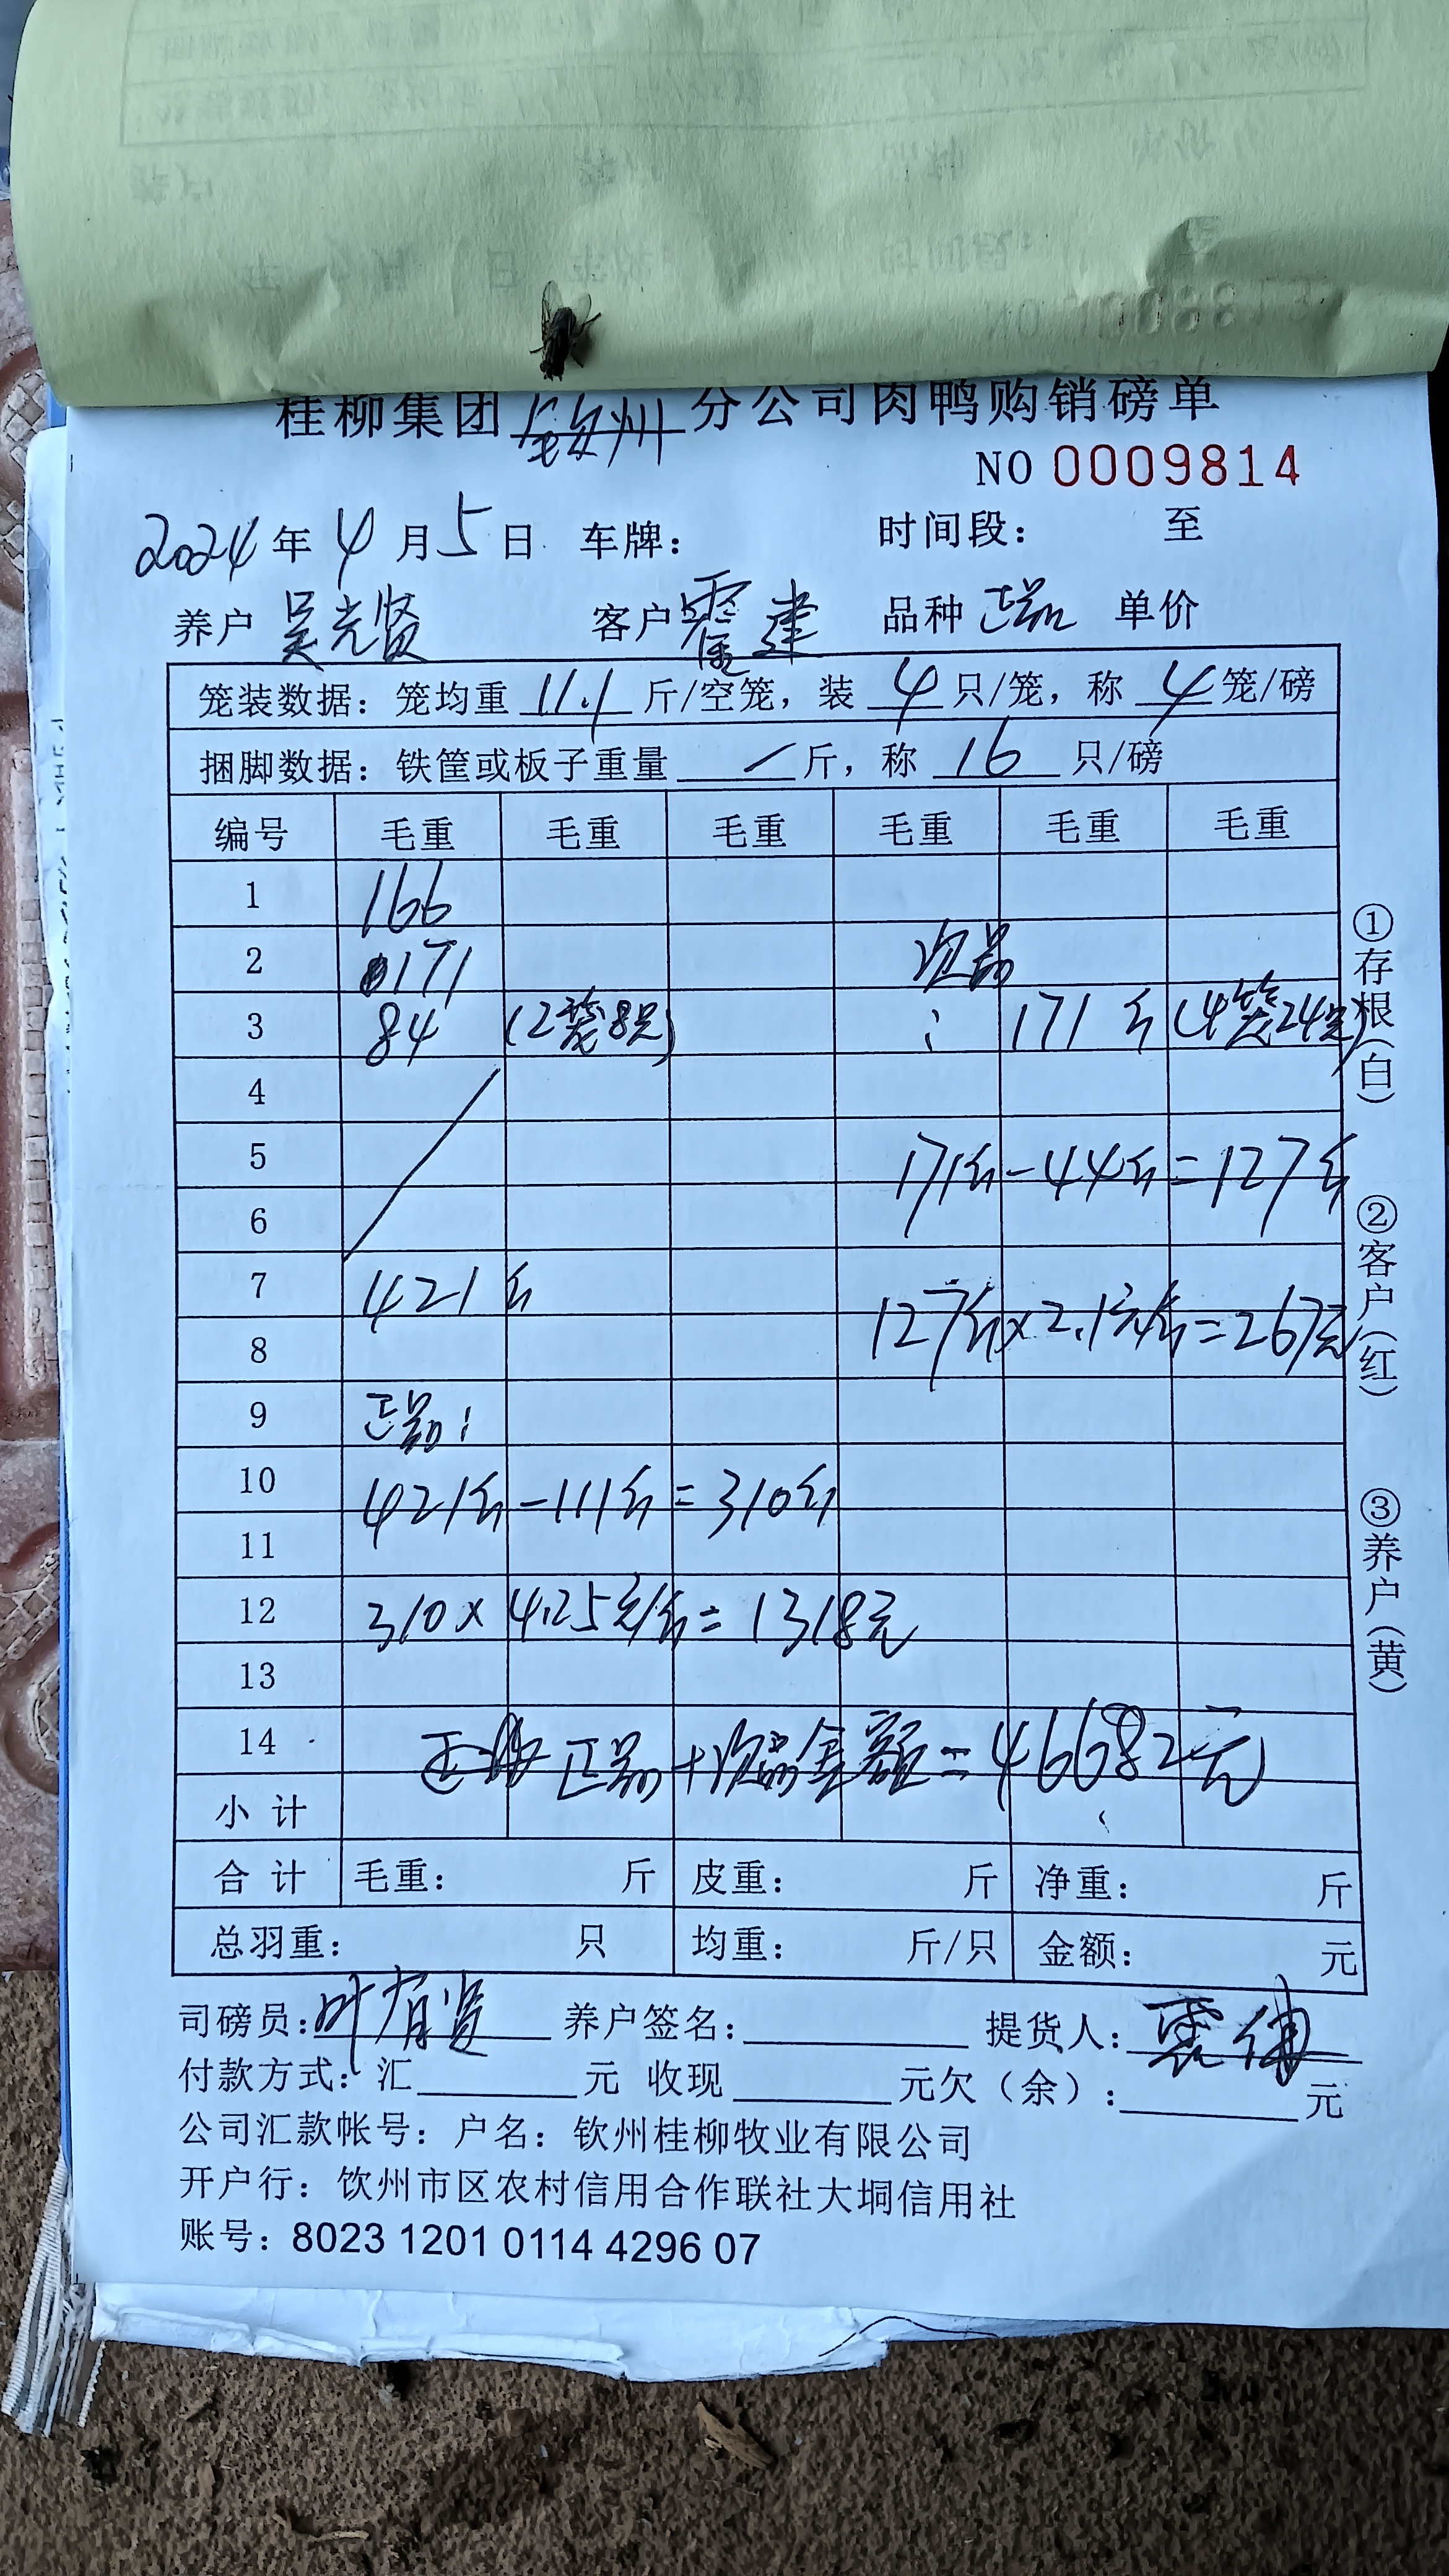 桂柳集团 钦州 分公司肉鸭购销磅单
NO 0009814
2024 年 4 月 5 日 车牌： 时间段： 至
养户 吴光贤 客户 霍建 品种 正品 单价
笼装数据：笼均重 11.1 斤/空笼，装 4 只/笼，称 4 笼/磅
捆脚数据：铁筐或板子重量 / 斤，称 16 只/磅
编号 毛重 毛重 毛重 毛重 毛重 毛重
1 166
2 171 次品
3 84 (2笼8只) : 171斤 (4笼24只)
4
5 171斤-44斤=127斤
6
7 421斤
8 127斤×2.1元/斤=267元
9 正品：
10 421斤-111斤=310斤
11
12 310×4.25元/斤=1318元
13
14 正品+次品金额=46682元
小计
合计 毛重： 斤 皮重： 斤 净重： 斤
总羽重： 只 均重： 斤/只 金额： 元
司磅员：叶有贤 养户签名： 提货人：
付款方式：汇 元 收现 元欠（余）： 元
公司汇款帐号：户名：钦州桂柳牧业有限公司
开户行：钦州市区农村信用合作联社大垌信用社
账号：8023 1201 0114 4296 07
①存根（白）
②客户（红）
③养户（黄）